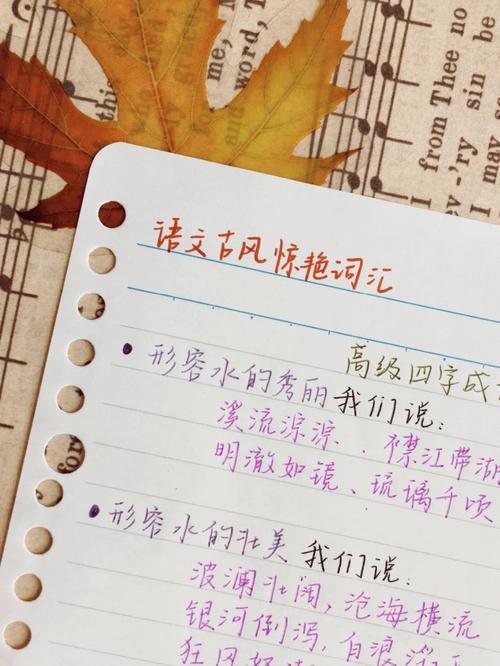 me, M
word,
from Thee no
-'ry sin be
I may s
and word
语文古风惊艳词汇
高级四字成
形容水的秀丽我们说:
溪流淙淙、襟江带湖
明澈如镜、琉璃千顷
for
形容水的壮美我们说:
波澜壮阔,沧海横流
银河倒泻,白浪滔
狂风怒